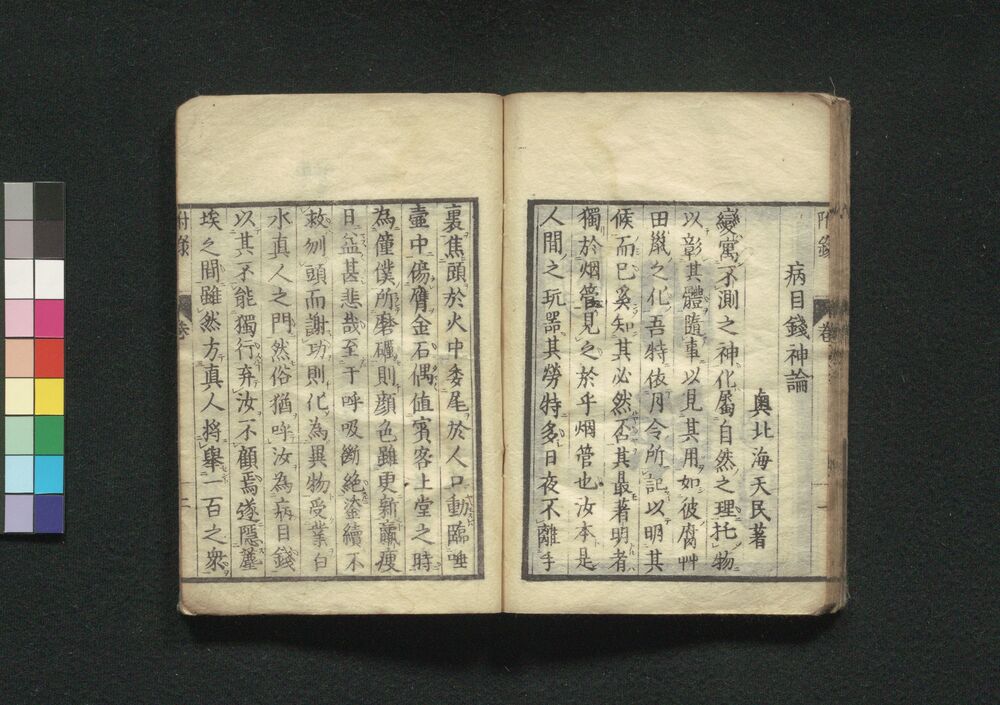 附錄
卷
一
病目錢神論
奧北海天民著
變寓不測之神化屬自然之理托物
以彰其體隨事以見其用如彼腐艸
田鼠之化吾特依月令所記以明其
候而已奚知其必然否其最著明者
獨於烟管見之於乎烟管也汝本是
人間之玩器其勞特多日夜不離手
裏焦頭於火中委尾於人口動臨唾
壷中傷膺金石偶值賓客上堂之時
為僮僕所磨礪則顏色雖更新羸痩
日益甚悲哉至于呼吸断絶塗續不
救刎頭而謝功則化為異物受業白
水真人之門然俗猶呼汝為病目錢
以其不能獨行弃汝不顧焉遂隱塵
埃之間雖然方真人将舉一百之衆
附錄
二